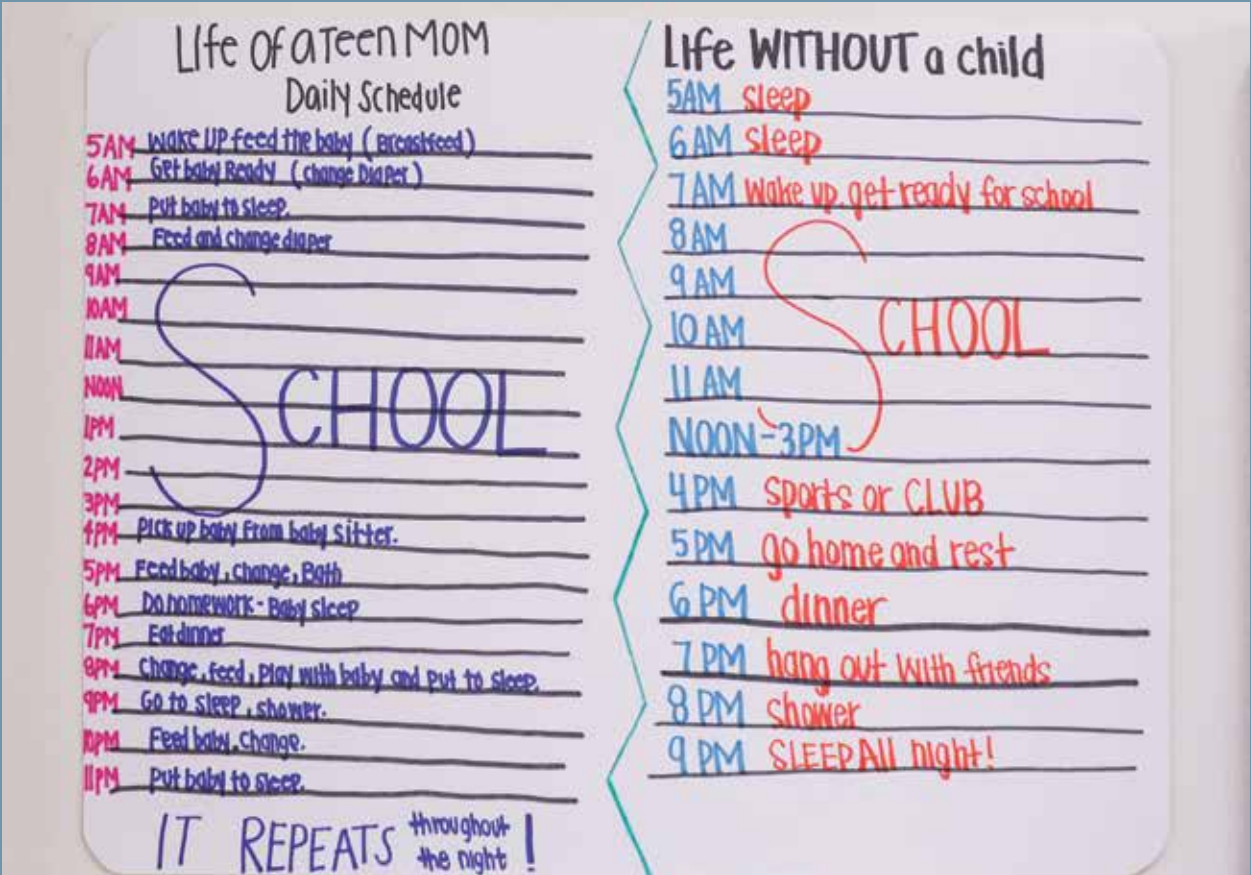 Life Of a Teen MOM
Daily Schedule
5AM Wake UP feed the baby (Breastfeed)
6AM Get baby Ready (change Diaper)
7AM Put baby to sleep.
8AM Feed and change diaper
9AM
10AM
11AM
NOON
SCHOOL
1PM
2PM
3PM
4PM Pick up baby From baby sitter.
5PM Feed baby, change, Bath
6PM Do homework - Baby sleep
7PM Eat dinner
8PM change, feed, Play with baby and put to sleep.
9PM Go to sleep, shower.
10PM Feed baby, change.
11PM Put baby to sleep.
IT REPEATS throughout the night!
Life WITHOUT a child
5AM sleep
6AM sleep
7AM wake up, get ready for school
8AM
9AM
SCHOOL
10AM
11AM
NOON-3PM
4PM sports or CLUB
5PM go home and rest
6PM dinner
7PM hang out with friends
8PM shower
9PM SLEEP All night!